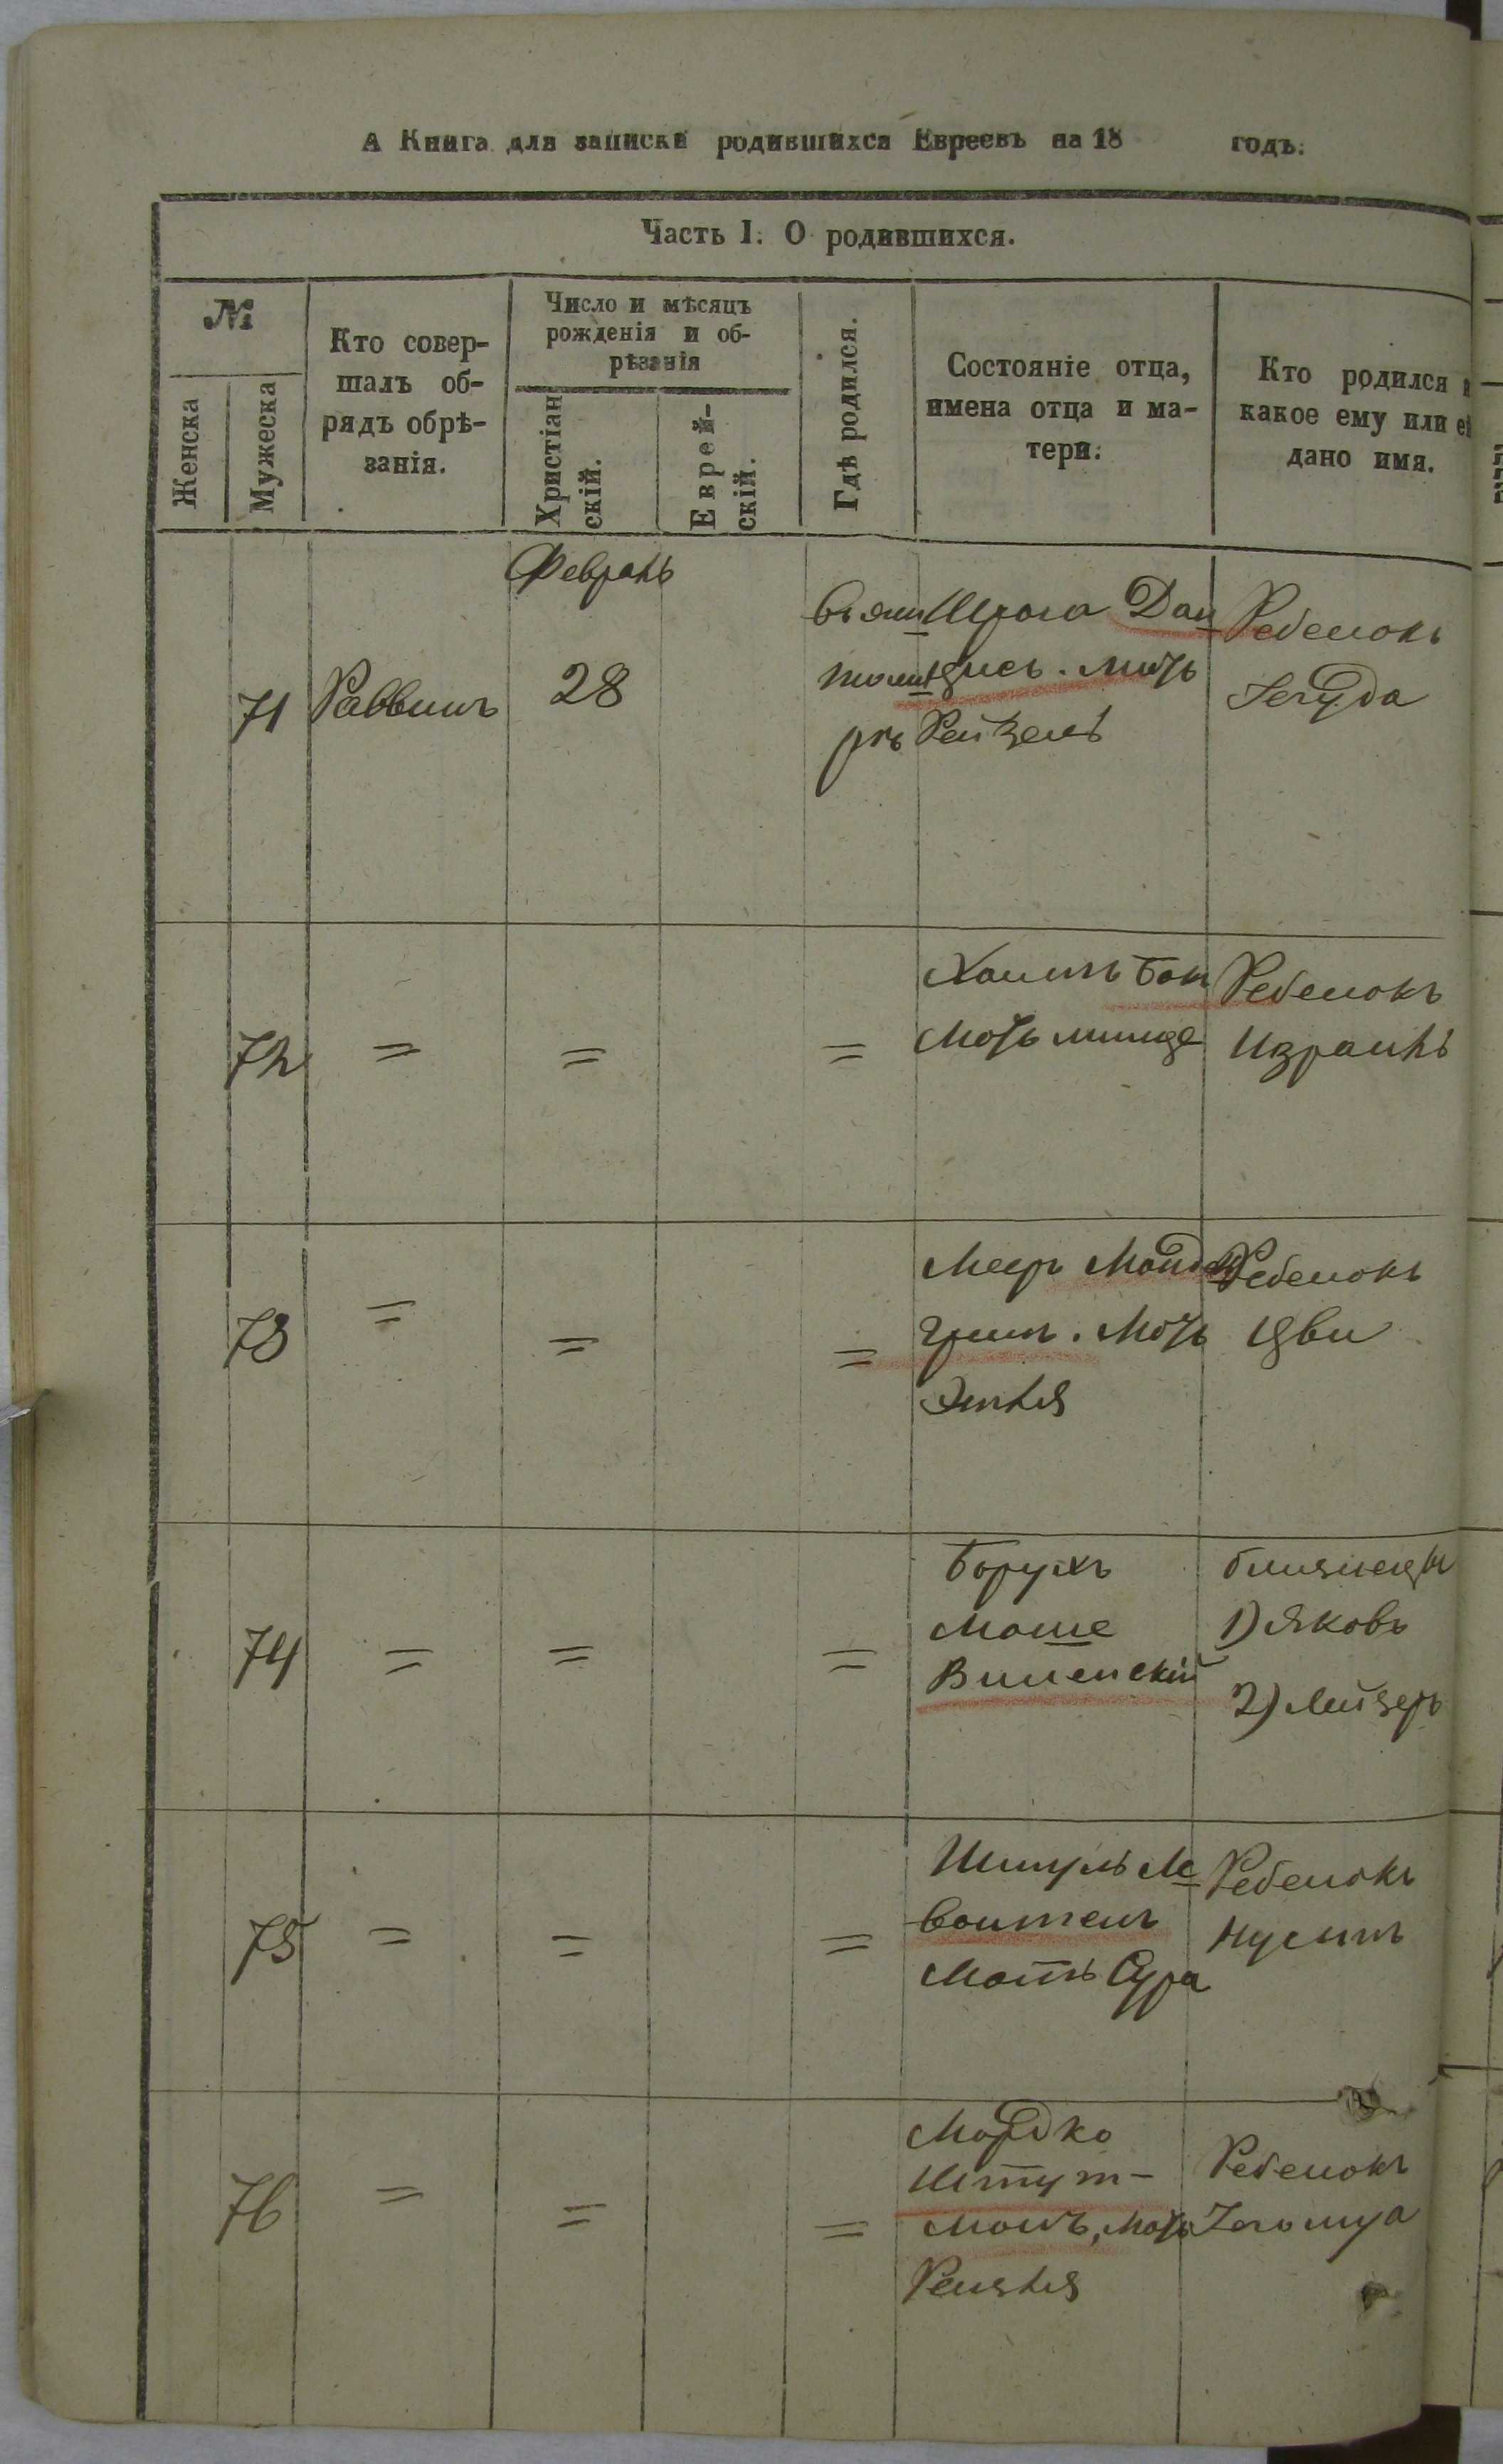 А Книга для записки родившихся Евреевъ на 18 годъ.
Часть I. О родившихся.
№
Женска
Мужеска
Кто совер-
шалъ об-
рядъ обрѣ-
занія.
Число и мѣсяцъ
рожденія и об-
рѣзанія
Христіан
скій.
Еврей-
скій.
Гдѣ родился.
Состояніе отца,
имена отца и ма-
тери.
Кто родился и
какое ему или ей
дано имя.
Февраль
71
Раввинъ
28
въ жи
томі
рѣ
Шрага Дан
цисъ. Мать
Рейзель
Ребенокъ
Іегуда
72
=
=
=
Хаимъ Бок
Мать минце
Ребенокъ
Израиль
73
=
=
=
Мееръ Манде
гринъ. Мать
Этля
Ребенокъ
Цви
74
=
=
=
Борухъ
Моше
Виленскій
близнецы
1) Яковъ
2) Лейзеръ
75
=
=
=
Шмуль Ле
воитенъ
Мать Сура
Ребенокъ
Нусинъ
76
=
=
=
Мордко
Штут-
манъ, Мать
Рейзля
Ребенокъ
Іегошуа